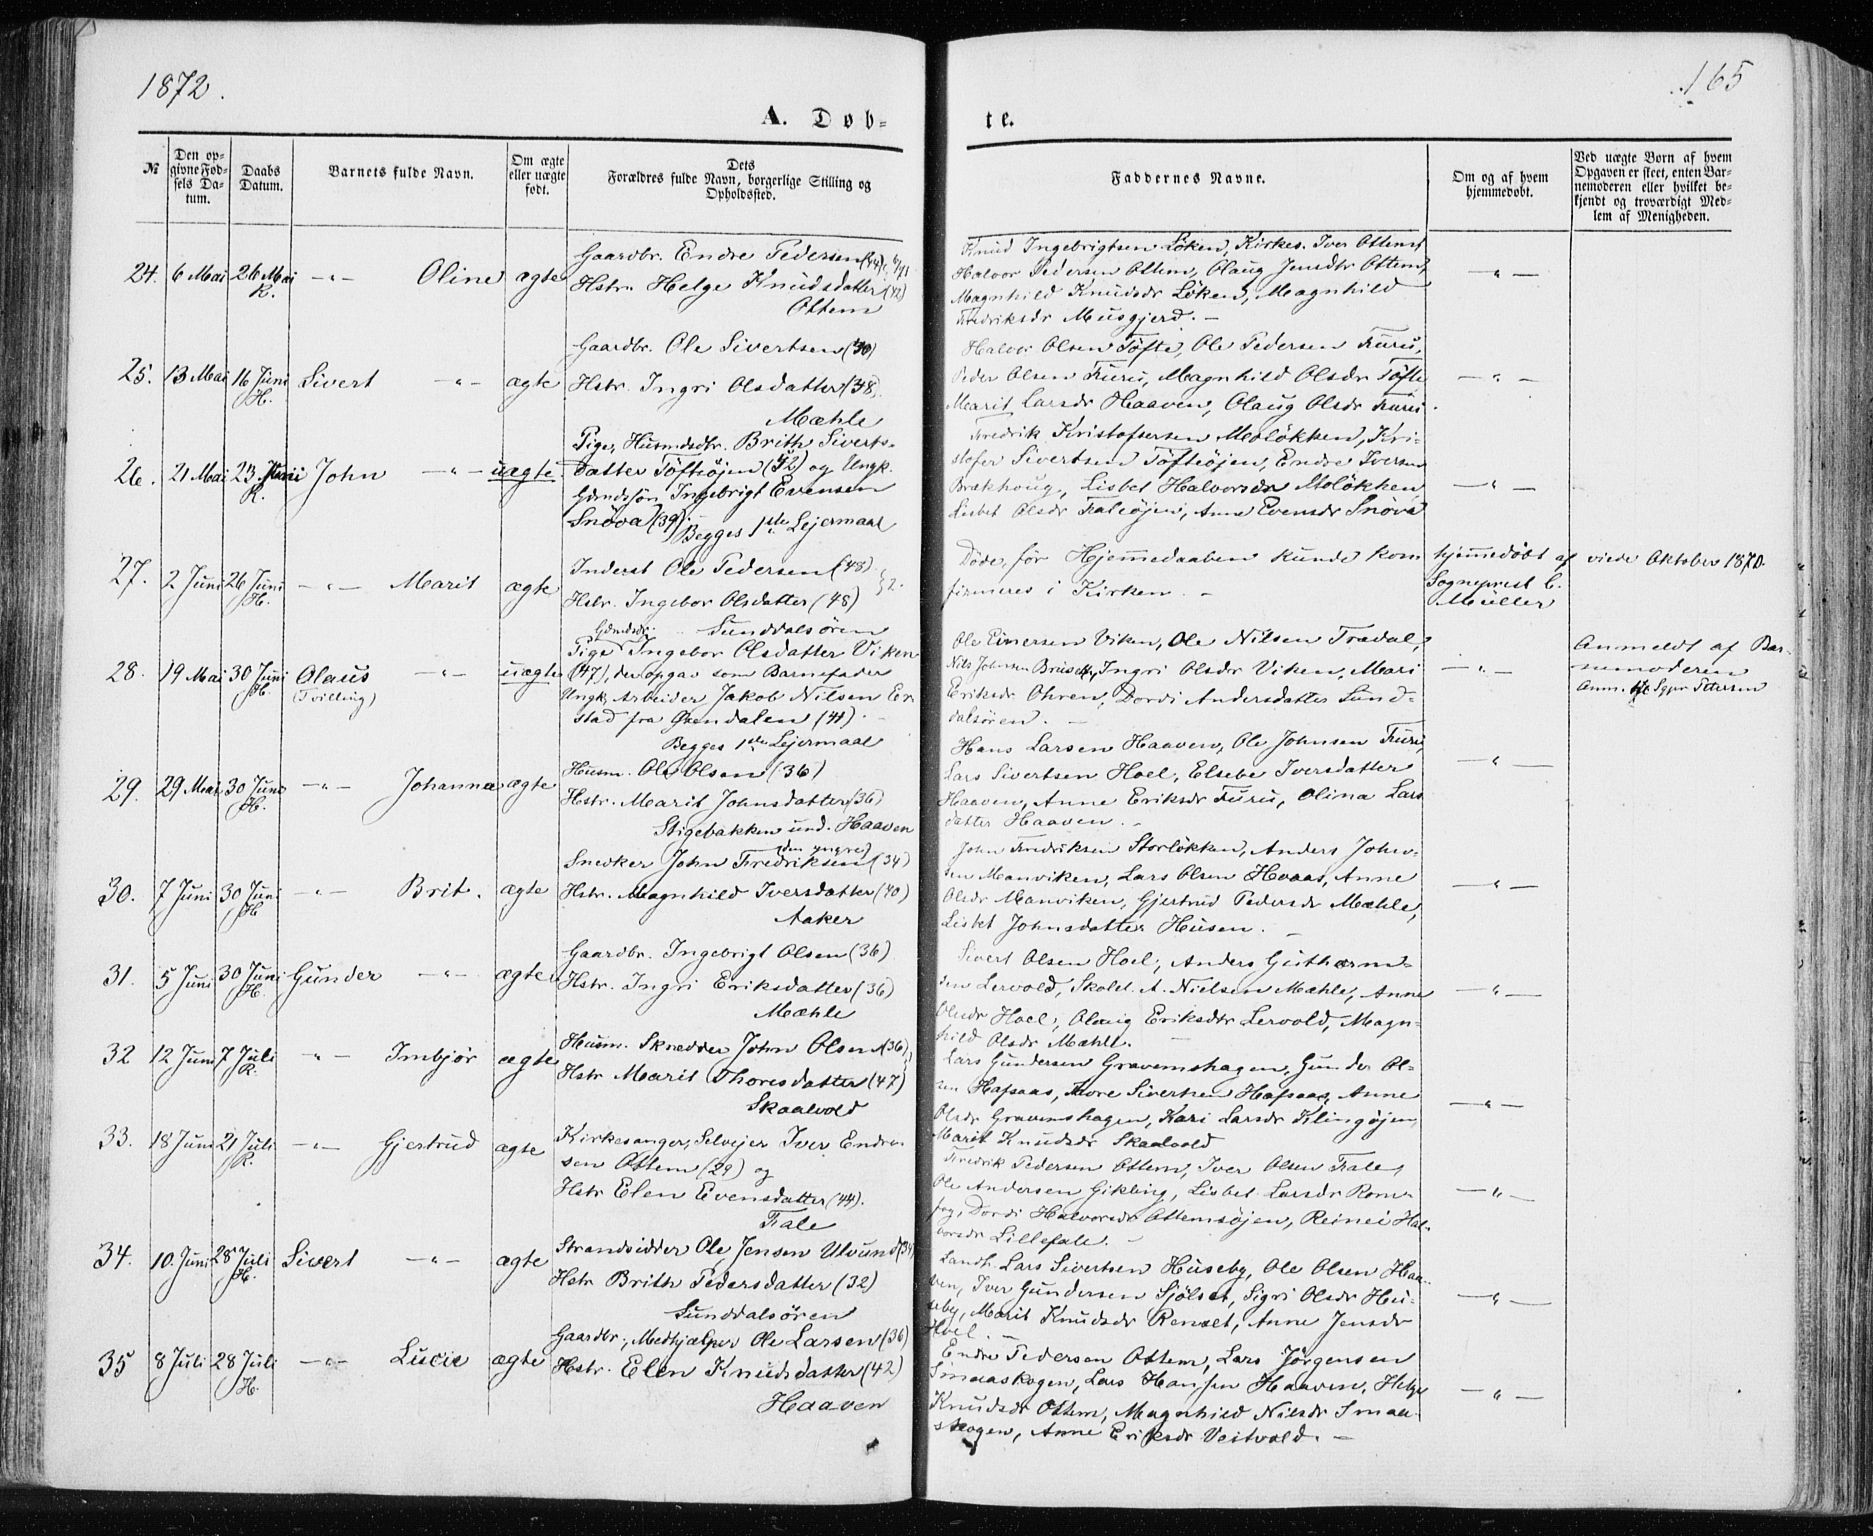 1872.
165
A. Døb-
te.
№
Den op-
givne Fød-
sels Da-
tum.
Daabs
Datum.
Barnets fulde Navn.
Om ægte
eller uægte
født.
Dets
Forældres fulde Navn, borgerlige Stilling og
Opholdssted.
Faddernes Navne.
Om og af hvem
hjemmedøbt.
Ved uægte Børn af hvem
Opgaven er skeet, enten Bar-
nemoderen eller hvilket be-
kjendt og troværdigt Med-
lem af Menigheden.
24. 6 Mai 26 Mai K. -"- Oline ægte
Gaardbr. Endre Pedersen
Hstr. Helge Knudsdatter (42)
Ottem
Knud Ingebrigtsen Løken, Kirkes. Iver Ottem,
Halvor Pedersen Ottem, Olaug Jensdtr Ottem,
Magnhild Knudsdr Løken, Magnhild
Fredriksdr Musgjerd. -
-"-
25. 13 Mai 16 Juni H. Sivert -"- ægte
Gaardbr. Ole Sivertsen (30)
Hstr. Ingri Olsdatter (38)
Mæhle
Halvor Olsen Tøfte, Ole Pedersen Furu,
Peder Olsen Furu, Magnhild Olsdr Tøfte
Marit Larsdr Haaven, Olaug Olsdr Furu.
-"-
26. 21 Mai 23 Juni K. John -"- uægte
Pige, Husmdsdtr. Brith Siverts-
datter Tøftøjen (52) og Ungk.
Gmdssøn Ingebrigt Evensen
Snøva (39).
Begges 1ste Lejermaal
Fredrik Kristofersen Moløkken, Kri-
stofer Sivertsen Tøftøjen, Endre Iversen
Brækhoug, Lisbet Halvorsdr Moløkken
Lisbet Olsdr Faleøjen, Anne Evensdr Snøva
-"-
27. 2 Juni 26 Juni H. -"- Marit ægte
Inderst Ole Pedersen (48)
Hstr. Ingebor Olsdatter (48) } 2.
Sunddalsøren
Døde, før Hjemmedaaben kunde kon
firmeres i Kirken. -
hjemmedøbt af
Sogneprest C.
Müller
viede Oktober 1870.
28. 19 Mai 30 Juni H. Olaus -"- uægte
(Tvilling)
Gmdsdr.
Pige Ingebor Olsdatter Viken
(47), der opgav som Barnefader
Ungk. Arbeider Jakob Nilsen Er-
stad fra Øxendalen (41). -
Begges 1ste Lejermaal
Ole Einersen Viken, Ole Nilsen Trædal,
Nils Johnsen Brusett, Ingri Olsdr Viken, Mari
Eriksdr Ohren, Dordi Andersdatter Sund-
dalsøren. -
-"-
Anmeldt af Bar-
nemoderen
Anm. Sgpr Petersen
29. 29 Mai 30 Juni H. -"- Johanna ægte
Husm. Ole Olsen (36)
Hstr. Marit Johnsdatter (36)
Stigebakken und. Haaven
Hans Larsen Haaven, Ole Johnsen Furu,
Lars Sivertsen Hoel, Elsebe Iversdatter
Haaven, Anne Eriksdr Furu, Olina Lars
datter Haaven. -
-"-
30. 7 Juni 30 Juni H -"- Brit. ægte
(den yngre)
Snedker John Fredriksen (34)
Hstr. Magnhild Iversdatter (40)
Aaker
John Fredriksen Storløkken, Anders John-
sen Manviken, Lars Olsen Hvaas, Anne
Olsdr Manviken, Gjertrud Pedersdr Mæhle,
Lisbet Johnsdatter Husen. -
-"-
31. 5 Juni 30 Juni H. Gunder -"- ægte
Gaardbr. Ingebrigt Olsen (36)
Hstr. Ingri Eriksdatter (36)
Mæhle
Sivert Olsen Hoel, Anders Guthorm-
sen Lervold, Skolel. A. Nielsen Mæhle, Anne
Olsdr Hoel, Olaug Eriksdtr Lervold, Magn-
hild Olsdr Mæhle. -
-"-
32 12 Juni 7 Juli K. -"- Imbjør ægte
Husm. Skrædder John Olsen (36)
Hstr Marit Thoresdatter (47)
Skaalvold
Lars Gundersen Gravemshagen, Gunder Ol-
sen Hafsaas, Tore Sivertsen Hafsaas, Anne
Olsdr Gravemshagen, Kari Larsdr Klingøjen,
Marit Knudsdr Skaalvold
-"-
33. 18 Juni 21 Juli K. -"- Gjertrud ægte
Kirkesanger, Selvejer Iver Endre-
sen Ottem (29) og
Hstr Elen Evensdatter (44).
Fale
Fredrik Pedersen Ottem, Iver Olsen Fale,
Ole Andersen Gikling, Lisbet Larsdr Rom-
fog, Dordi Halvorsdr Ottemsøjen, Reinei Hal-
vorsdr Lillefale. -
-"-
34. 10. Juni 28 Juli H. Sivert -"- ægte
Strandsidder Ole Jensen Ulvund (34)
Hstr Brith Pedersdatter (32)
Sunddalsøren
Landh. Lars Sivertsen Huseby, Ole Olsen Haa-
ven, Iver Gundersen Sjølset, Sigri Olsdr Hu-
seby, Marit Knudsdr Renset, Anne Jensdr
Hoel. -
-"-
35 8 Juli 28 Juli H. -"- Lucie ægte
Gaardbr., Medhjælper Ole Larsen (36)
Hstr. Elen Knudsdatter (42)
Haaven
Endre Pedersen Ottem, Lars Jørgensen
Smaaskogen, Lars Hansen Haaven, Helge
Knudsdr Ottem, Magnhild Nilsdr Smaa-
skogen, Anne Eriksdr Vestvold. -
-"-